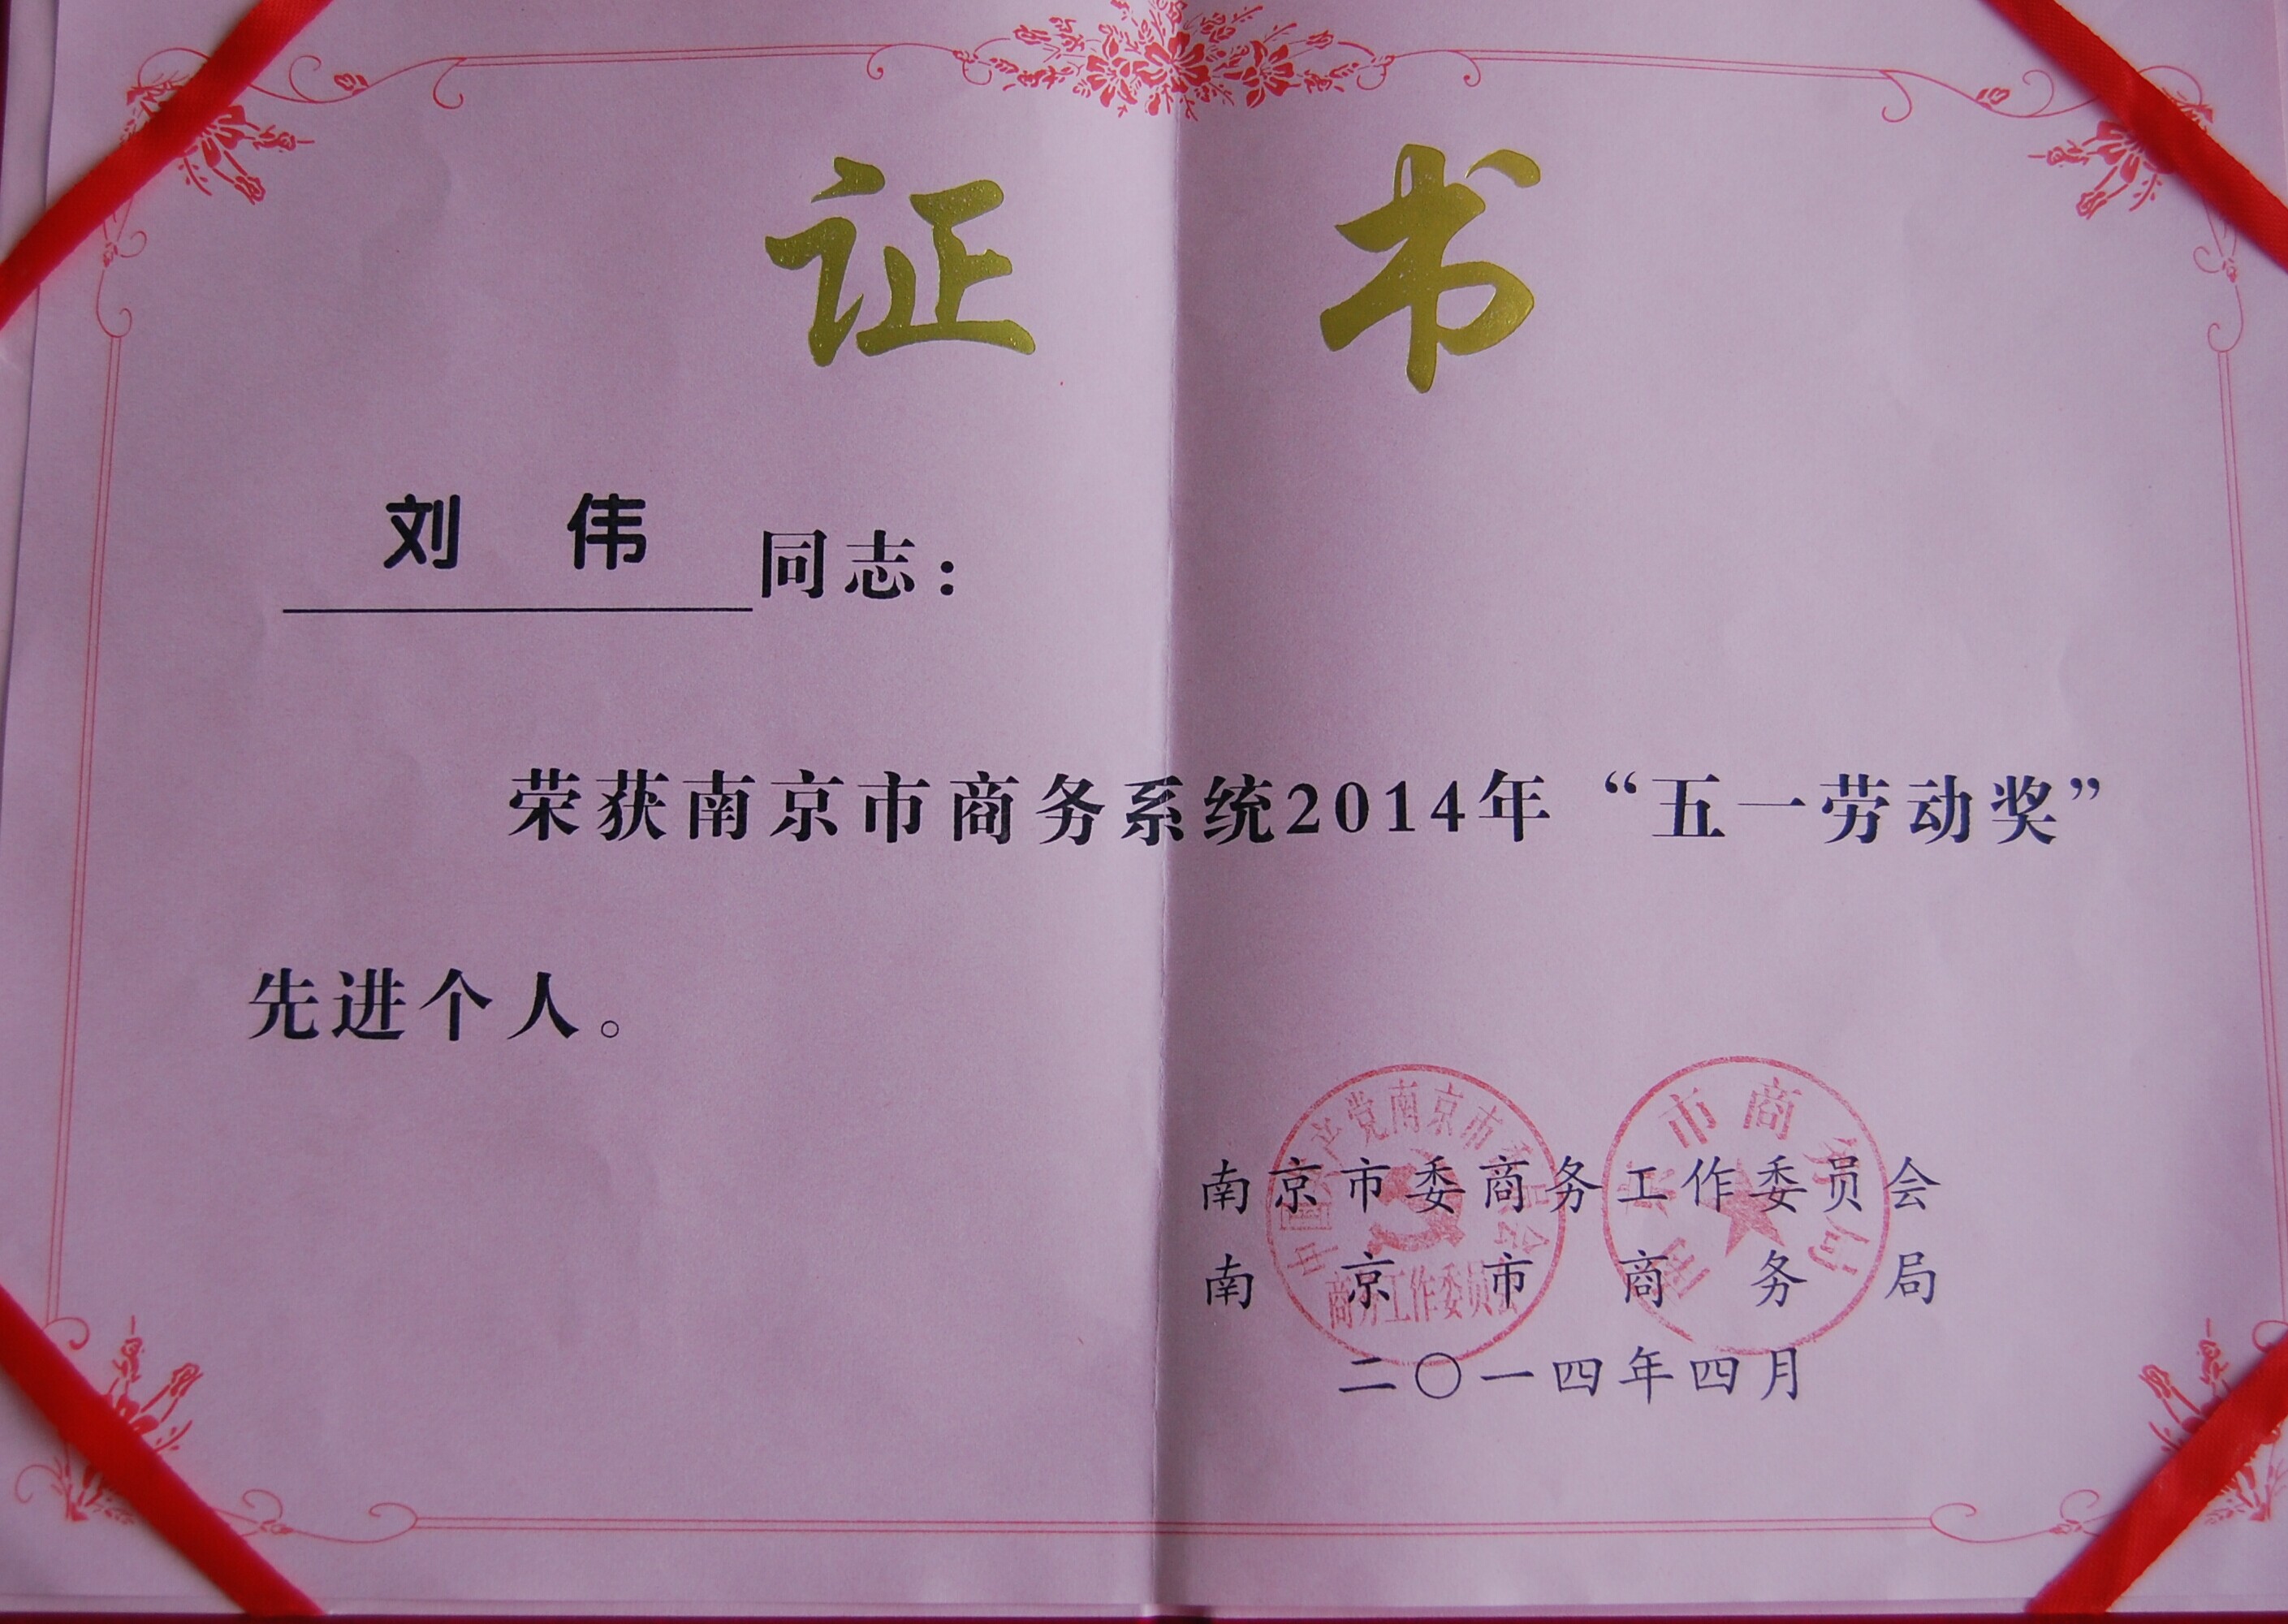 证书
刘伟同志：
荣获南京市商务系统2014年“五一劳动奖”
先进个人。
南京市委商务工作委员会
南京市商务局
二〇一四年四月
中国共产党南京市委员会
商务工作委员会
南京市商务局